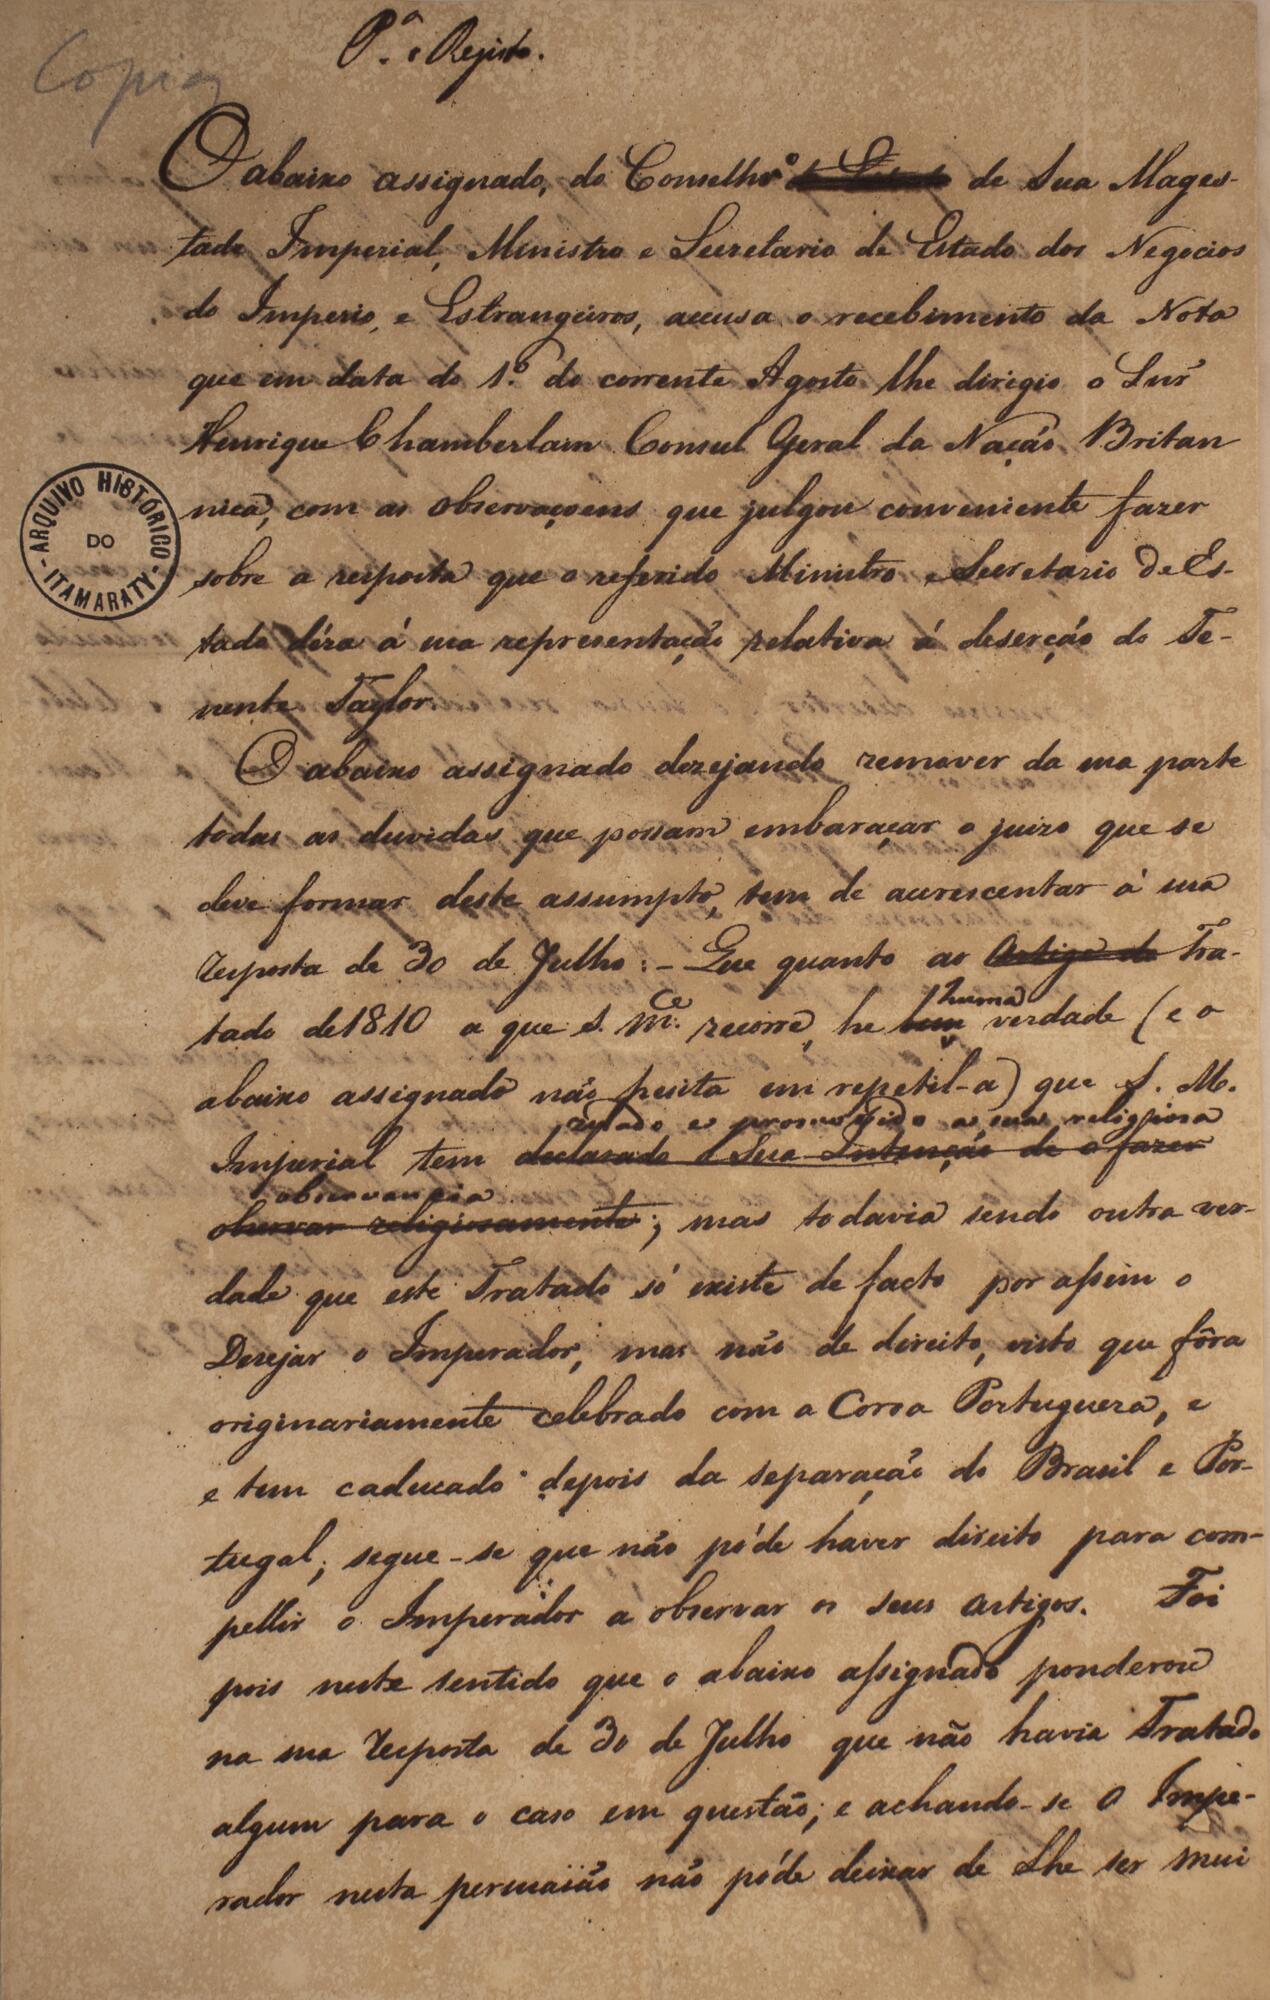 Copia
P.ª o Registo.
O abaixo assignado, do Conselho de Sua Mages-
tade Imperial, Ministro e Secretario de Estado dos Negocios
do Imperio, e Estrangeiros, accusa o recebimento da Nota
que em data do 1.º do corrente Agosto lhe dirigio o Snr
Henrique Chamberlain Consul Geral da Nação Britan
nica, com as observaçoens que julgou conveniente fazer
sobre a resposta que o referido Ministro e Secretario de Es-
tado déra á sua representação relativa á deserção do Te-
nente Taylor.
O abaixo assignado dezejando remover da sua parte
todas as duvidas que possam embaraçar o juizo que se
deve formar deste assumpto, tem de accrescentar á sua
resposta de 30 de Julho: - Que quanto ao Artigo do Tra-
huma
tado de 1810 a que S. M.ce recorre, he bem verdade (e o
abaixo assignado não hesita em repetil-a) que S. M.
zelado e promovido a sua religiosa
Imperial tem declarado a Sua Intenção de o fazer
observancia
observar religiosamente; mas todavia sendo outra ver-
dade que este Tratado só existe de facto por assim o
Desejar o Imperador, mas não de direito, visto que fôra
originariamente celebrado com a Coroa Portugueza, e
e tem caducado depois da separação do Brasil e Por-
tugal; segue-se que não póde haver direito para com-
pellir o Imperador a observar os seus artigos. Foi
pois neste sentido que o abaixo assignado ponderou
na sua resposta de 30 de Julho que não havia Tratado
algum para o caso em questão; e achando-se O Impe-
rador nesta persuaiaõ não póde deixar de Lhe ser mui
ARQUIVO HISTÓRICO
DO
- ITAMARATY -